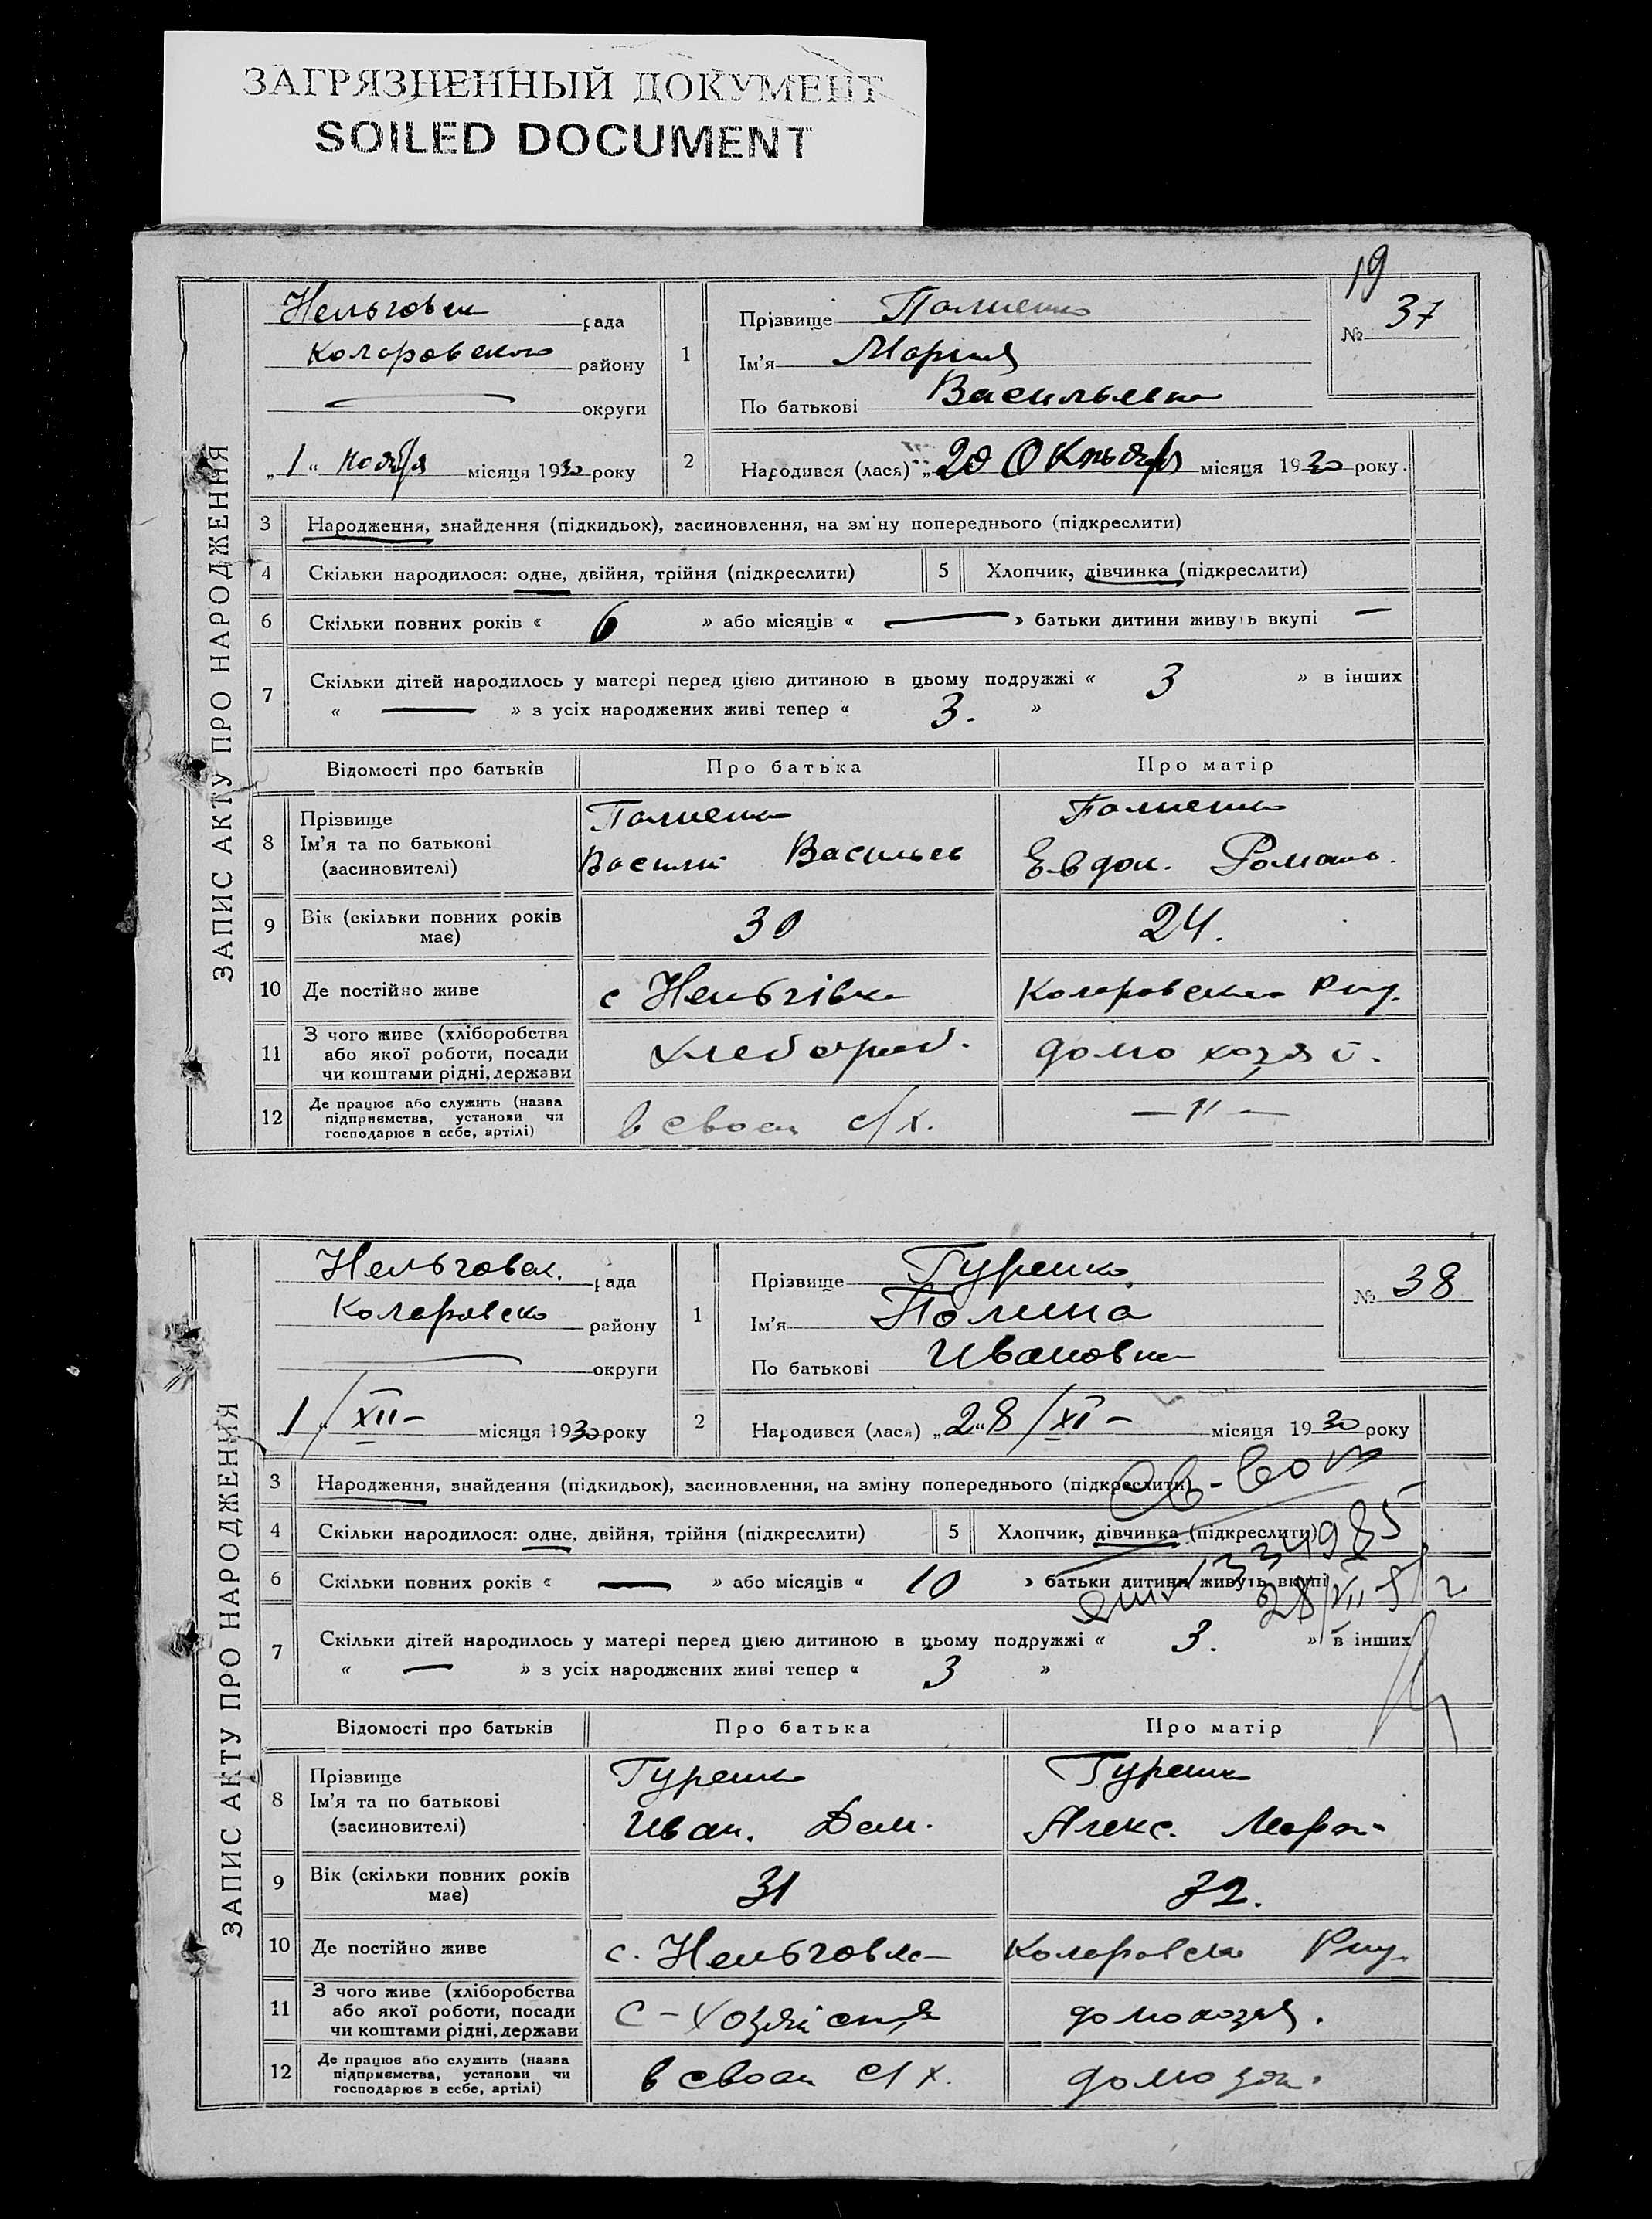 ЗАГРЯЗНЕННЫЙ ДОКУМЕНТ
SOILED DOCUMENT
19
ЗАПИС АКТУ ПРО НАРОДЖЕННЯ
Нельговск рада
Коларовского району
— округи
„1“ ноября місяця 1930 року
1
Прізвище
Ім'я Мария
По батькові Васильевна
№ 37
2
Народився (лася) „20 Октября місяця 1930 року.
3 Народження, знайдення (підкидьок), засиновлення, на зміну попереднього (підкреслити)
4 Скільки народилося: одне, двійня, трійня (підкреслити)
5 Хлопчик, дівчинка (підкреслити)
6 Скільки повних років « 6 » або місяців « — » батьки дитини живуть вкупі —
7 Скільки дітей народилось у матері перед цією дитиною в цьому подружжі « 3 » в інших
« — » з усіх народжених живі тепер « 3. »
Відомості про батьків Про батька Про матір
8 Прізвище
Ім'я та по батькові
(засиновителі)
Василий Васильев
Евдок. Романо.
9 Вік (скільки повних років
має)
30
24.
10 Де постійно живе с Нельгівка Коларовского
11 З чого живе (хліборобства
або якої роботи, посади
чи коштами рідні, держави
хлебороб.
домохозяй.
12 Де працює або служить (назва
підприємства, установи чи
господарює в себе, артілі)
в своем с/х.
— " —
ЗАПИС АКТУ ПРО НАРОДЖЕННЯ
Нельговск. рада
Коларовско району
— округи
1 „ / XII – місяця 1930 року
1
Прізвище Гуренко
Ім'я Полина
По батькові Ивановна
№ 38
2
Народився (лася) „28 / XI – місяця 1930 року
3 Народження, знайдення (підкидьок), засиновлення, на зміну попереднього (підкреслити)
4 Скільки народилося: одне, двійня, трійня (підкреслити)
5 Хлопчик, дівчинка (підкреслити)
6 Скільки повних років « — » або місяців « 10 » батьки дитини живуть вкупі
7 Скільки дітей народилось у матері перед цією дитиною в цьому подружжі « 3. » в інших
« — » з усіх народжених живі тепер « 3 »
Відомості про батьків Про батька Про матір
8 Прізвище
Ім'я та по батькові
(засиновителі)
Гуренко
Иван. Дем.
Гуренко
Алекс. Марк.
9 Вік (скільки повних років
має)
31
32.
10 Де постійно живе с. Нельговка Коларовско
11 З чого живе (хліборобства
або якої роботи, посади
чи коштами рідні, держави
С-хозяйства
домохозя.
12 Де працює або служить (назва
підприємства, установи чи
господарює в себе, артілі)
в своем с/х.